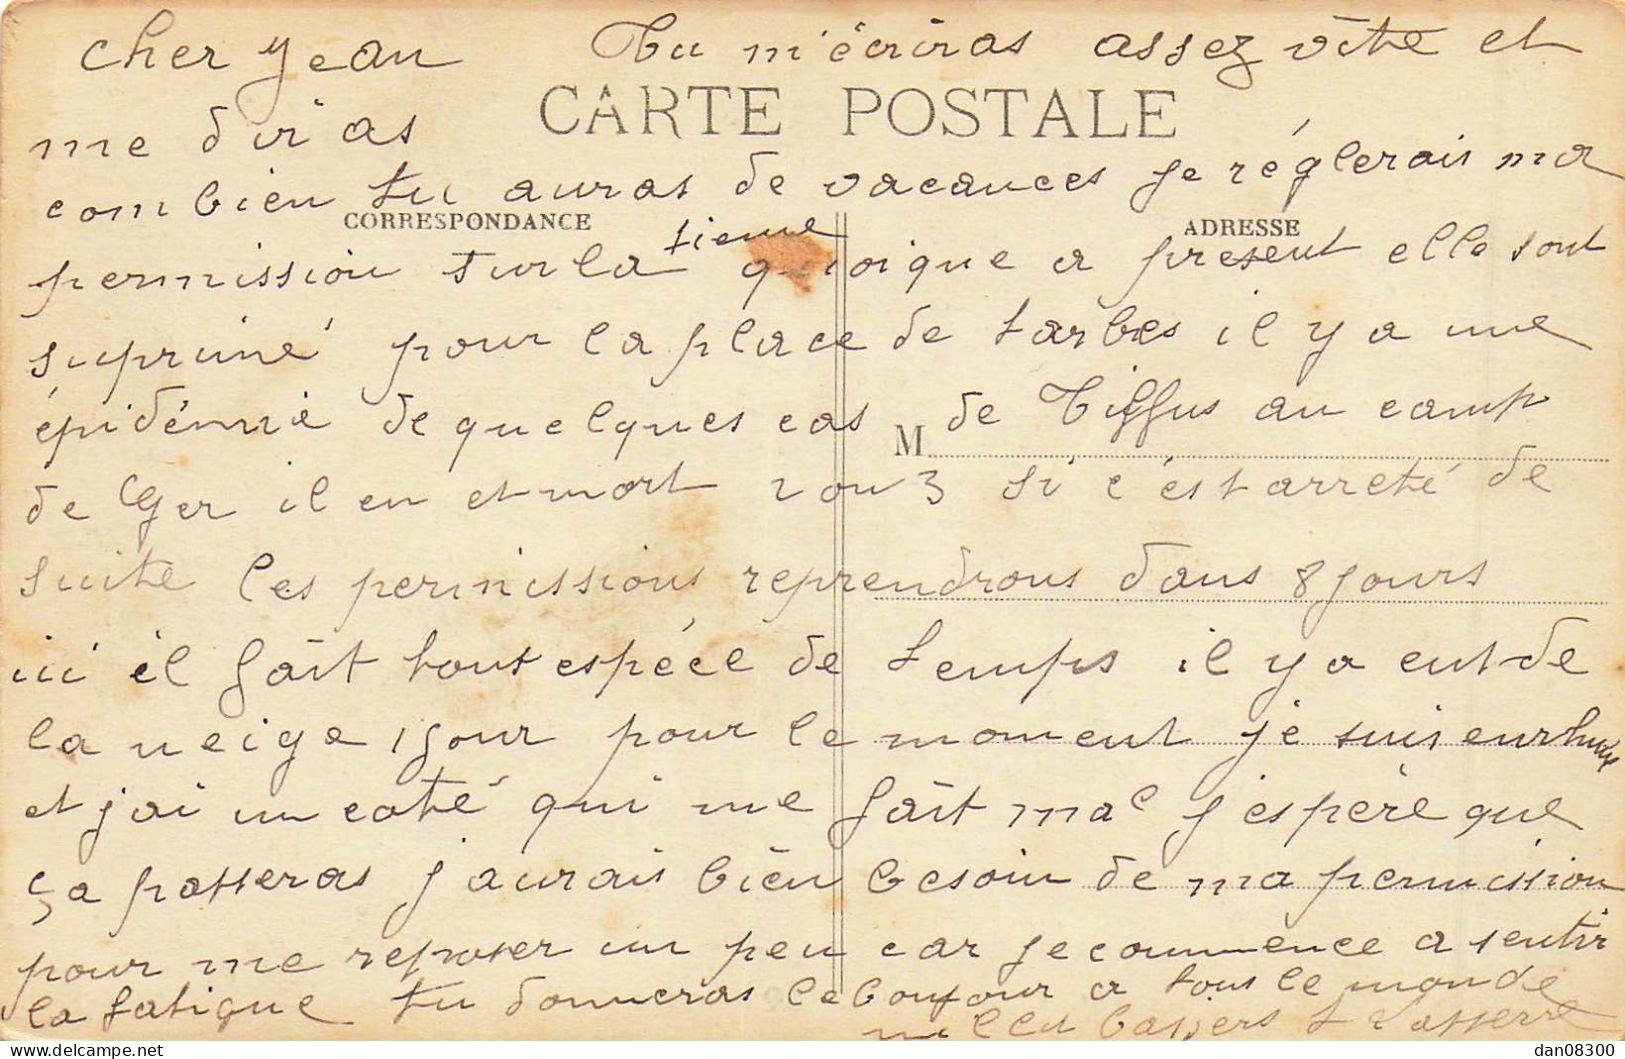 cher Jean Tu m'écriras assez vite et
CARTE POSTALE
me diras
combien tu auras de vacances je réglerais ma
CORRESPONDANCE
ADRESSE
permission sur la tienne quoique a present elle sont
suprimé pour la place de tarbes il y a une
épidémie de quelques cas de Tiffus au camp
M
de Ger il en et mort 2 ou 3 si c'est arreté de
suite les permissions reprendrons dans 8 jours
ici il fait tout espéce de temps il y a eut de
la neige 1 jour pour le moment je suis enrhumé
et j'ai un coté qui me fait mal j'espère que
ça passeras j'aurais bien besoin de ma permission
pour me reposer un peu car je commence a sentir
la fatigue tu donneras le bonjour a tous le monde
mille baisers
dan08300